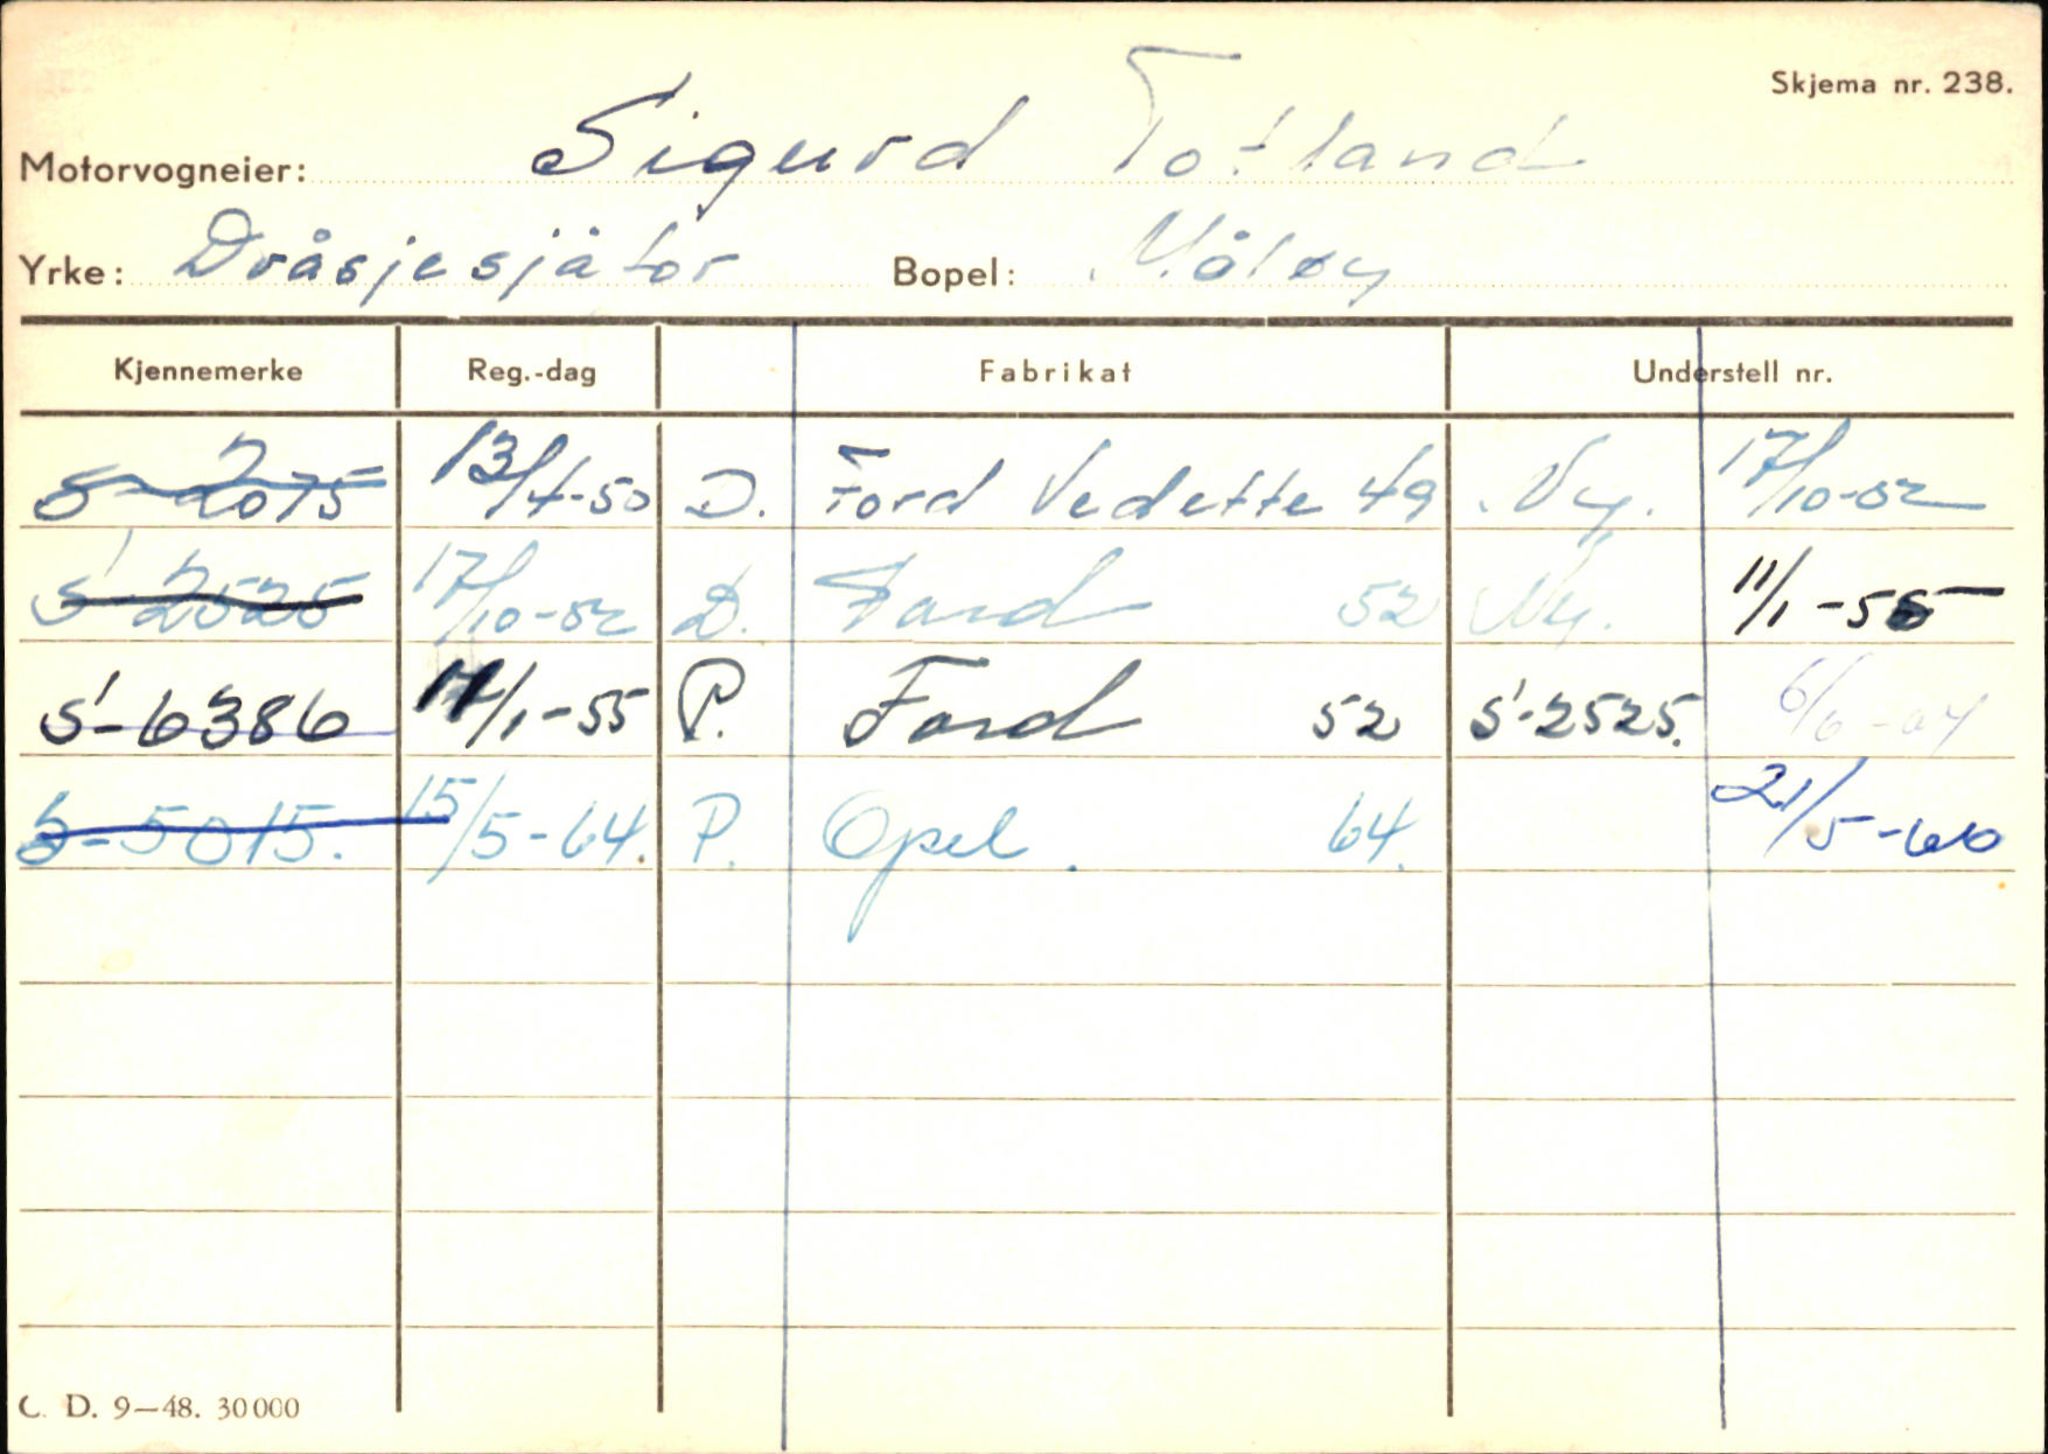 Skjema nr. 238.
Motorvogneier: Sigurd Totland
Yrke: Dråsjesjåför Bopel: Måløy
Kjennemerke Reg.-dag Fabrikat Understell nr.
S-2075 13/4-50 D. Ford Vedette 49 Ny. 17/10-52
S-2525 17/10-52 D. Ford 52 Ny. 11/1-55
S-6386 11/1-55 P. Ford 52 S-2525.
S-5015. 15/5-64. P. Opel. 64. 21/5-66
C. D. 9—48. 30000